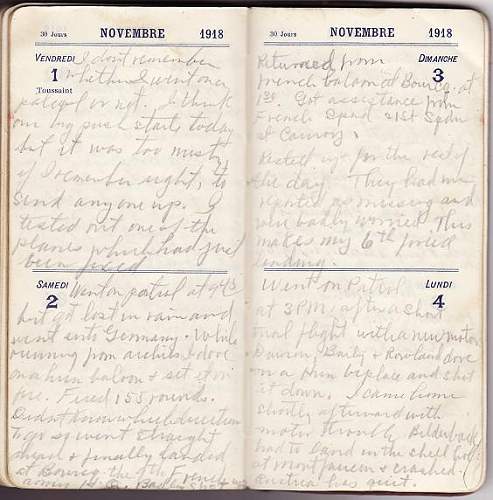 30 Jours NOVEMBRE 1918
VENDREDI
1
Toussaint
I dont remember
whether I went on a
patrol or not. I think
our big push starts today
but it was too musty,
if I remember right, to
send anyone up. I
tested out one of the
planes which had just
been fixed
SAMEDI
2
Went on patrol at 9.15
but got lost in rain and
went into Germany. While
running from archies I dove
on a hun baloon & set it on
fire. Fired 155 rounds.
Didnt know which direction
to go so went straight
ahead & finally landed
at the French
30 Jours NOVEMBRE 1918
DIMANCHE
3
Returned from
French baloon at at
1st. Got assistance from
French Spad 21st Sqdn
at
Rested up for the rest of
the day. They had me
reported as missing and
were badly worried. This
makes my 6th forced
landing.
LUNDI
4
Went on Patrol
at 3 PM after a short
trial flight with a new motor
Baily & Rowland dove
on a Hun biplace and shot
it down. I came home
shortly afterward with
motor trouble
had to land in the shell holes
at montfaucon & crashed.
Austria has quit.